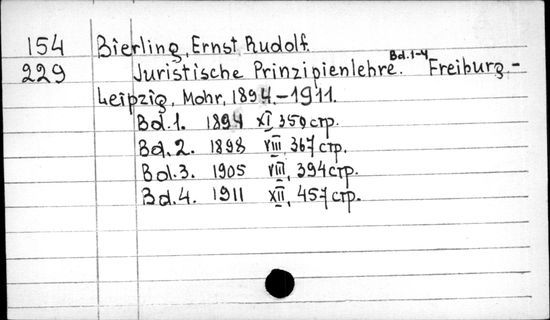 154 Bierling, Ernst Rudolf.
229 Juristische Prinzipienlehre. Bd.1-4 Freiburg.-
Leipzig, Mohr, 1894.-1911.
Bd.1. 1894 XI, 350 стр.
Bd.2. 1898 VIII, 367 стр.
Bd.3. 1905 VIII, 394 стр.
Bd.4. 1911 XII, 457 стр.